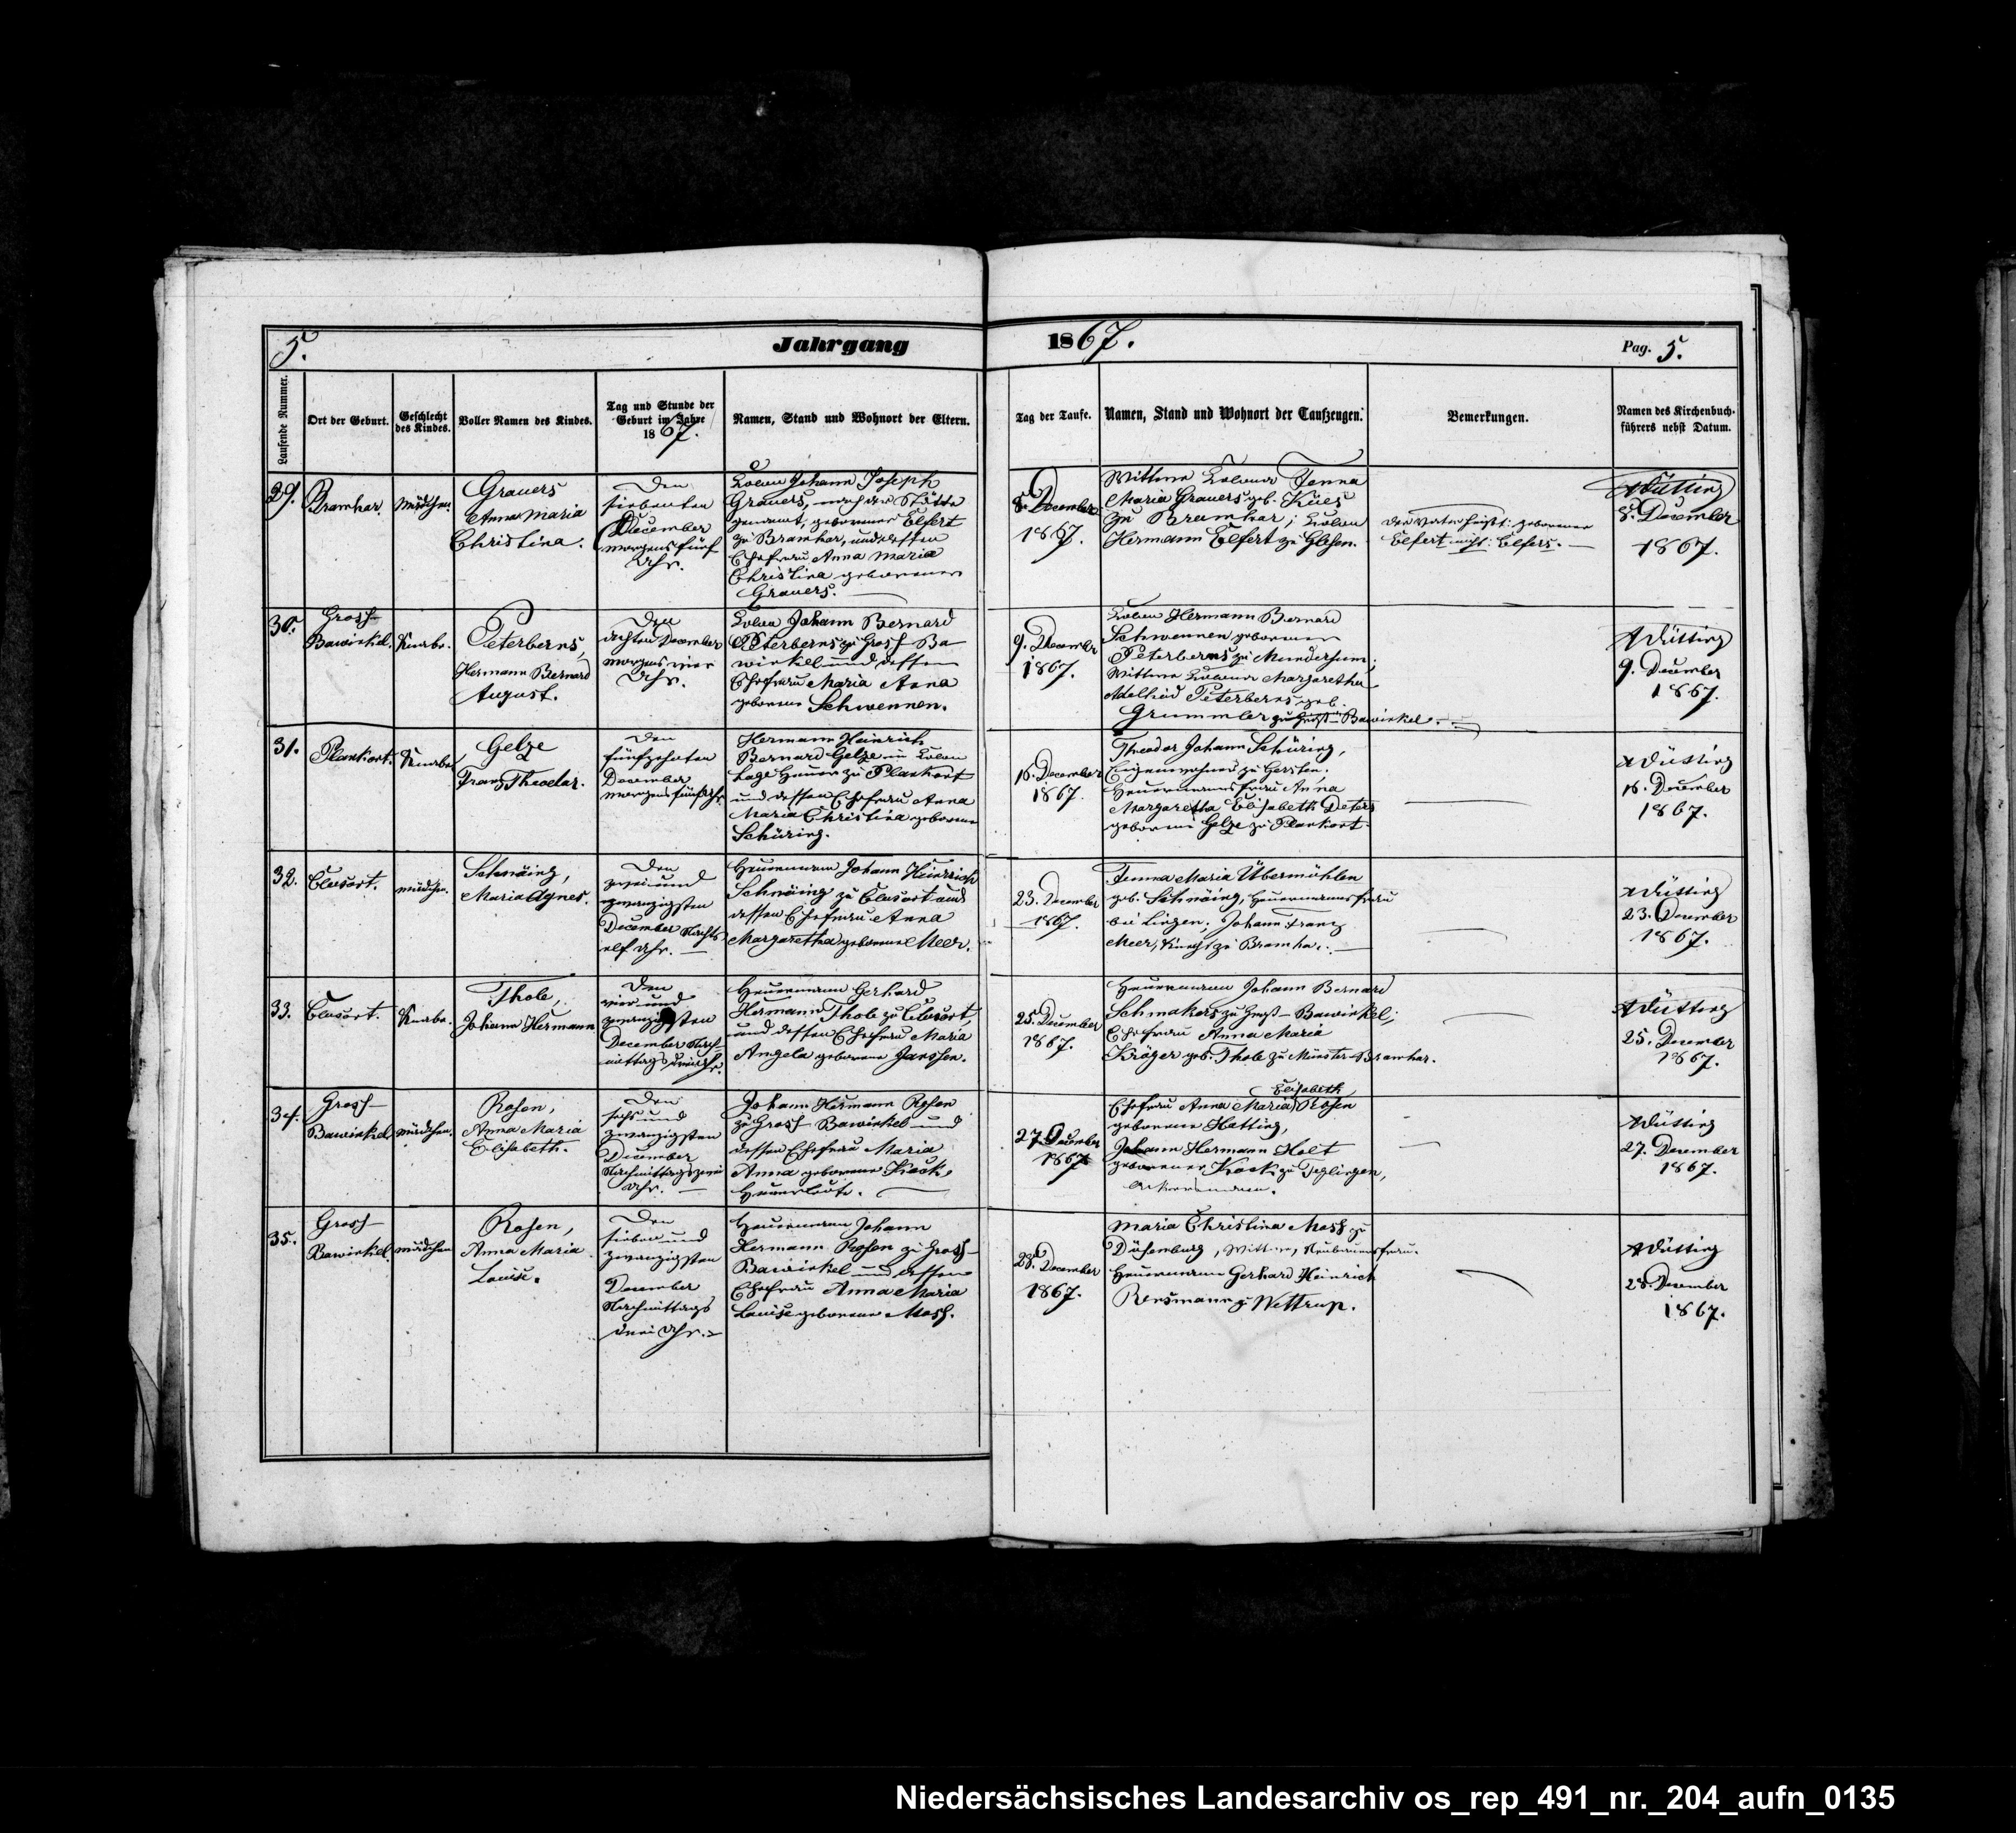 5.
Jahrgang
1867.
Pag. 5.
Laufende Nummer.
Ort der Geburt.
Geschlecht
des Kindes.
Voller Namen des Kindes.
Tag und Stunde der
Geburt im Jahre
1867.
Namen, Stand und Wohnort der Eltern.
Tag der Taufe.
Namen, Stand und Wohnort der Taufzeugen.
Bemerkungen.
Namen des Kirchenbuch-
führers nebst Datum.
29.
Bramhar.
Mädchen.
Grauers
Anna Maria
Christina.
Den
siebenten
December
morgens fünf
Uhr.
Colon Johann Joseph
Grauers, nach der Stätte
genannt, geborener Elfert
zu Bramhar, und dessen
Ehefrau Anna Maria
Christina geborene
Grauers.
8. December
1867.
Wittwe Colona Fenna
Maria Grauers geb. Kües
zu Bramhar; Colon
Hermann Elfert zu Glesen.
Der Vater heißt: geborener
Elfert nicht: Elfers.
8. December
1867.
30.
Gross-
Bawinkel.
Knabe.
Peterberns,
Hermann Bernard
August.
Den
achten December
morgens vier
Uhr.
Colon Johann Bernard
Peterberns zu Gross-Ba-
winkel und dessen
Ehefrau Maria Anna
geborene Schwennen.
9. December
1867.
Colon Hermann Bernard
Schwennen geborener
Peterberns zu Mundersum;
Wittwe Colona Margaretha
Adelheid Peterberns geb.
Grummler zu Groß-Bawinkel.
9. December
1867.
31.
Plankort.
Knabe.
Gelze
Franz Theodor.
Den
fünfzehnten
December
morgens fünf Uhr.
Hermann Heinrich
Bernard Gelze in Colon
Lage Heuer zu Plankort
und dessen Ehefrau Anna
Maria Christina geborene
Schüring.
16. December
1867.
Theodor Johann Schüring,
zu Gersten;
Heuermanns Frau Anna
Margaretha Elisabeth Deters
geborene Gelze zu Plankort.
16. December
1867.
32.
Clusort.
Mädchen.
Schnöing,
Maria Agnes.
Den
zwei und
zwanzigsten
December Nachts
elf Uhr.
Heuermann Johann Heinrich
Schnöing zu Clusort und
dessen Ehefrau Anna
Margaretha geborene Meer.
23. December
1867.
Fenna Maria Übermöhlen
geb. Schnöing, Heuermannsfrau
bei Lingen; Johann Franz
Meer, Knecht zu Bramhar.
23. December
1867.
33.
Clusort.
Knabe.
Thole,
Johann Hermann
Den
vier und
zwanzigsten
December Nach-
mittags drei Uhr.
Heuermann Gerhard
Hermann Thole zu Clusort,
und dessen Ehefrau Maria
Angela geborene Janssen.
25. December
1867.
Heuermann Johann Bernard
Schmakers zu Groß-Bawinkel;
Ehefrau Anna Maria
Kröger geb. Thole zu Münster-Bramhar.
25. December
1867.
34.
Gross-
Bawinkel
Mädchen.
Rosen,
Anna Maria
Elisabeth.
Den
sechs und
zwanzigsten
December
Nachmittags zwei
Uhr.
Johann Hermann Rosen
zu Gross Bawinkel und
dessen Ehefrau Maria
Anna geborene Kock,
Heuerleute.
27. December
1867
Elisabeth
Ehefrau Anna Maria Rosen
geborene Hatting,
Johann Hermann Holt
geborener Kock zu Teglingen,
Ackersmann.
27. December
1867.
35.
Gross-
Bawinkel.
Mädchen
Rosen,
Anna Maria
Louise.
Den
sieben und
zwanzigsten
December
Nachmittags
drei Uhr.
Heuermann Johann
Hermann Rosen zu Gross-
Bawinkel und dessen
Ehefrau Anna Maria
Louise geborene Mosß.
28. December
1867.
Maria Christina Mosß zu
Düsenburg, Wittwe, Neubauersfrau.
Heuermann Gerhard Heinrich
zu Wettrup.
28. December
1867.
Niedersächsisches Landesarchiv os_rep_491_nr._204_aufn_0135